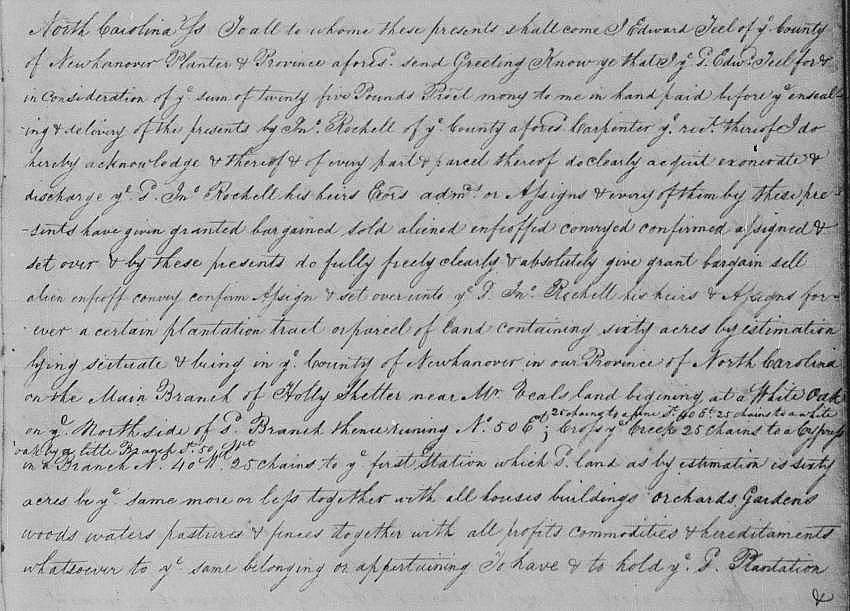 North Carolina Ss To all to whome these presents shall come I Edward Teel of ye County
of Newhanover Planter & Province aforesd. send Greeting Know ye that I ye Sd. Edwd. Teel for &
in Consideration of ye sum of twenty five Pounds Procl mony to me in hand paid before ye enseal-
ing & delivery of the presents by Jno. Rochell of ye County aforesd Carpenter ye rect. thereof I do
hereby acknowledge & thereof & of every part & parcel thereof do clearly acquit exonerate &
discharge ye Sd. Jno Rochell his heirs Exors admrs or Assigns & every of them by these pre-
-sents have given granted bargained sold aliened enfeoffed conveyed confirmed assigned &
set over & by these presents do fully freely clearly & absolutely give grant bargain sell
alien enfeoff convey confirm Assign & set over unto ye Sd. Jno. Rochell his heirs & Assigns for-
ever a certain plantation tract or parcel of land containing sixty acres by estimation
lying scituate & being in ye County of Newhanover in our Province of North Carolina
on the Main Branch of Holly Shelter near Mr. land begining at a White Oak
25 chains to a pine So. 40 Et. 25 chains to a white
on ye North side of Sd. Branch thence runing No. 50 Et; Cross ye Creek 25 Chains to a Cypress
oak by a little Branch So. 50 Wt
in a Branch N. 40 Wt. 25 chains to ye first Station which Sd. land as by estimation is sixty
acres be ye same more or less together with all houses buildings orchards Gardens
woods waters pastures & fences together with all profits commodities & hereditaments
whatsoever to ye same belonging or appertaining To have & to hold ye Sd. Plantation
&